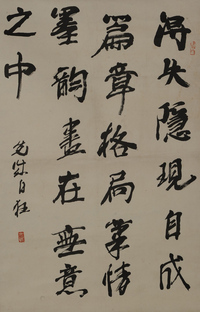 得失隱現自成
篇章格局筆情
墨韵盡在無意
之中